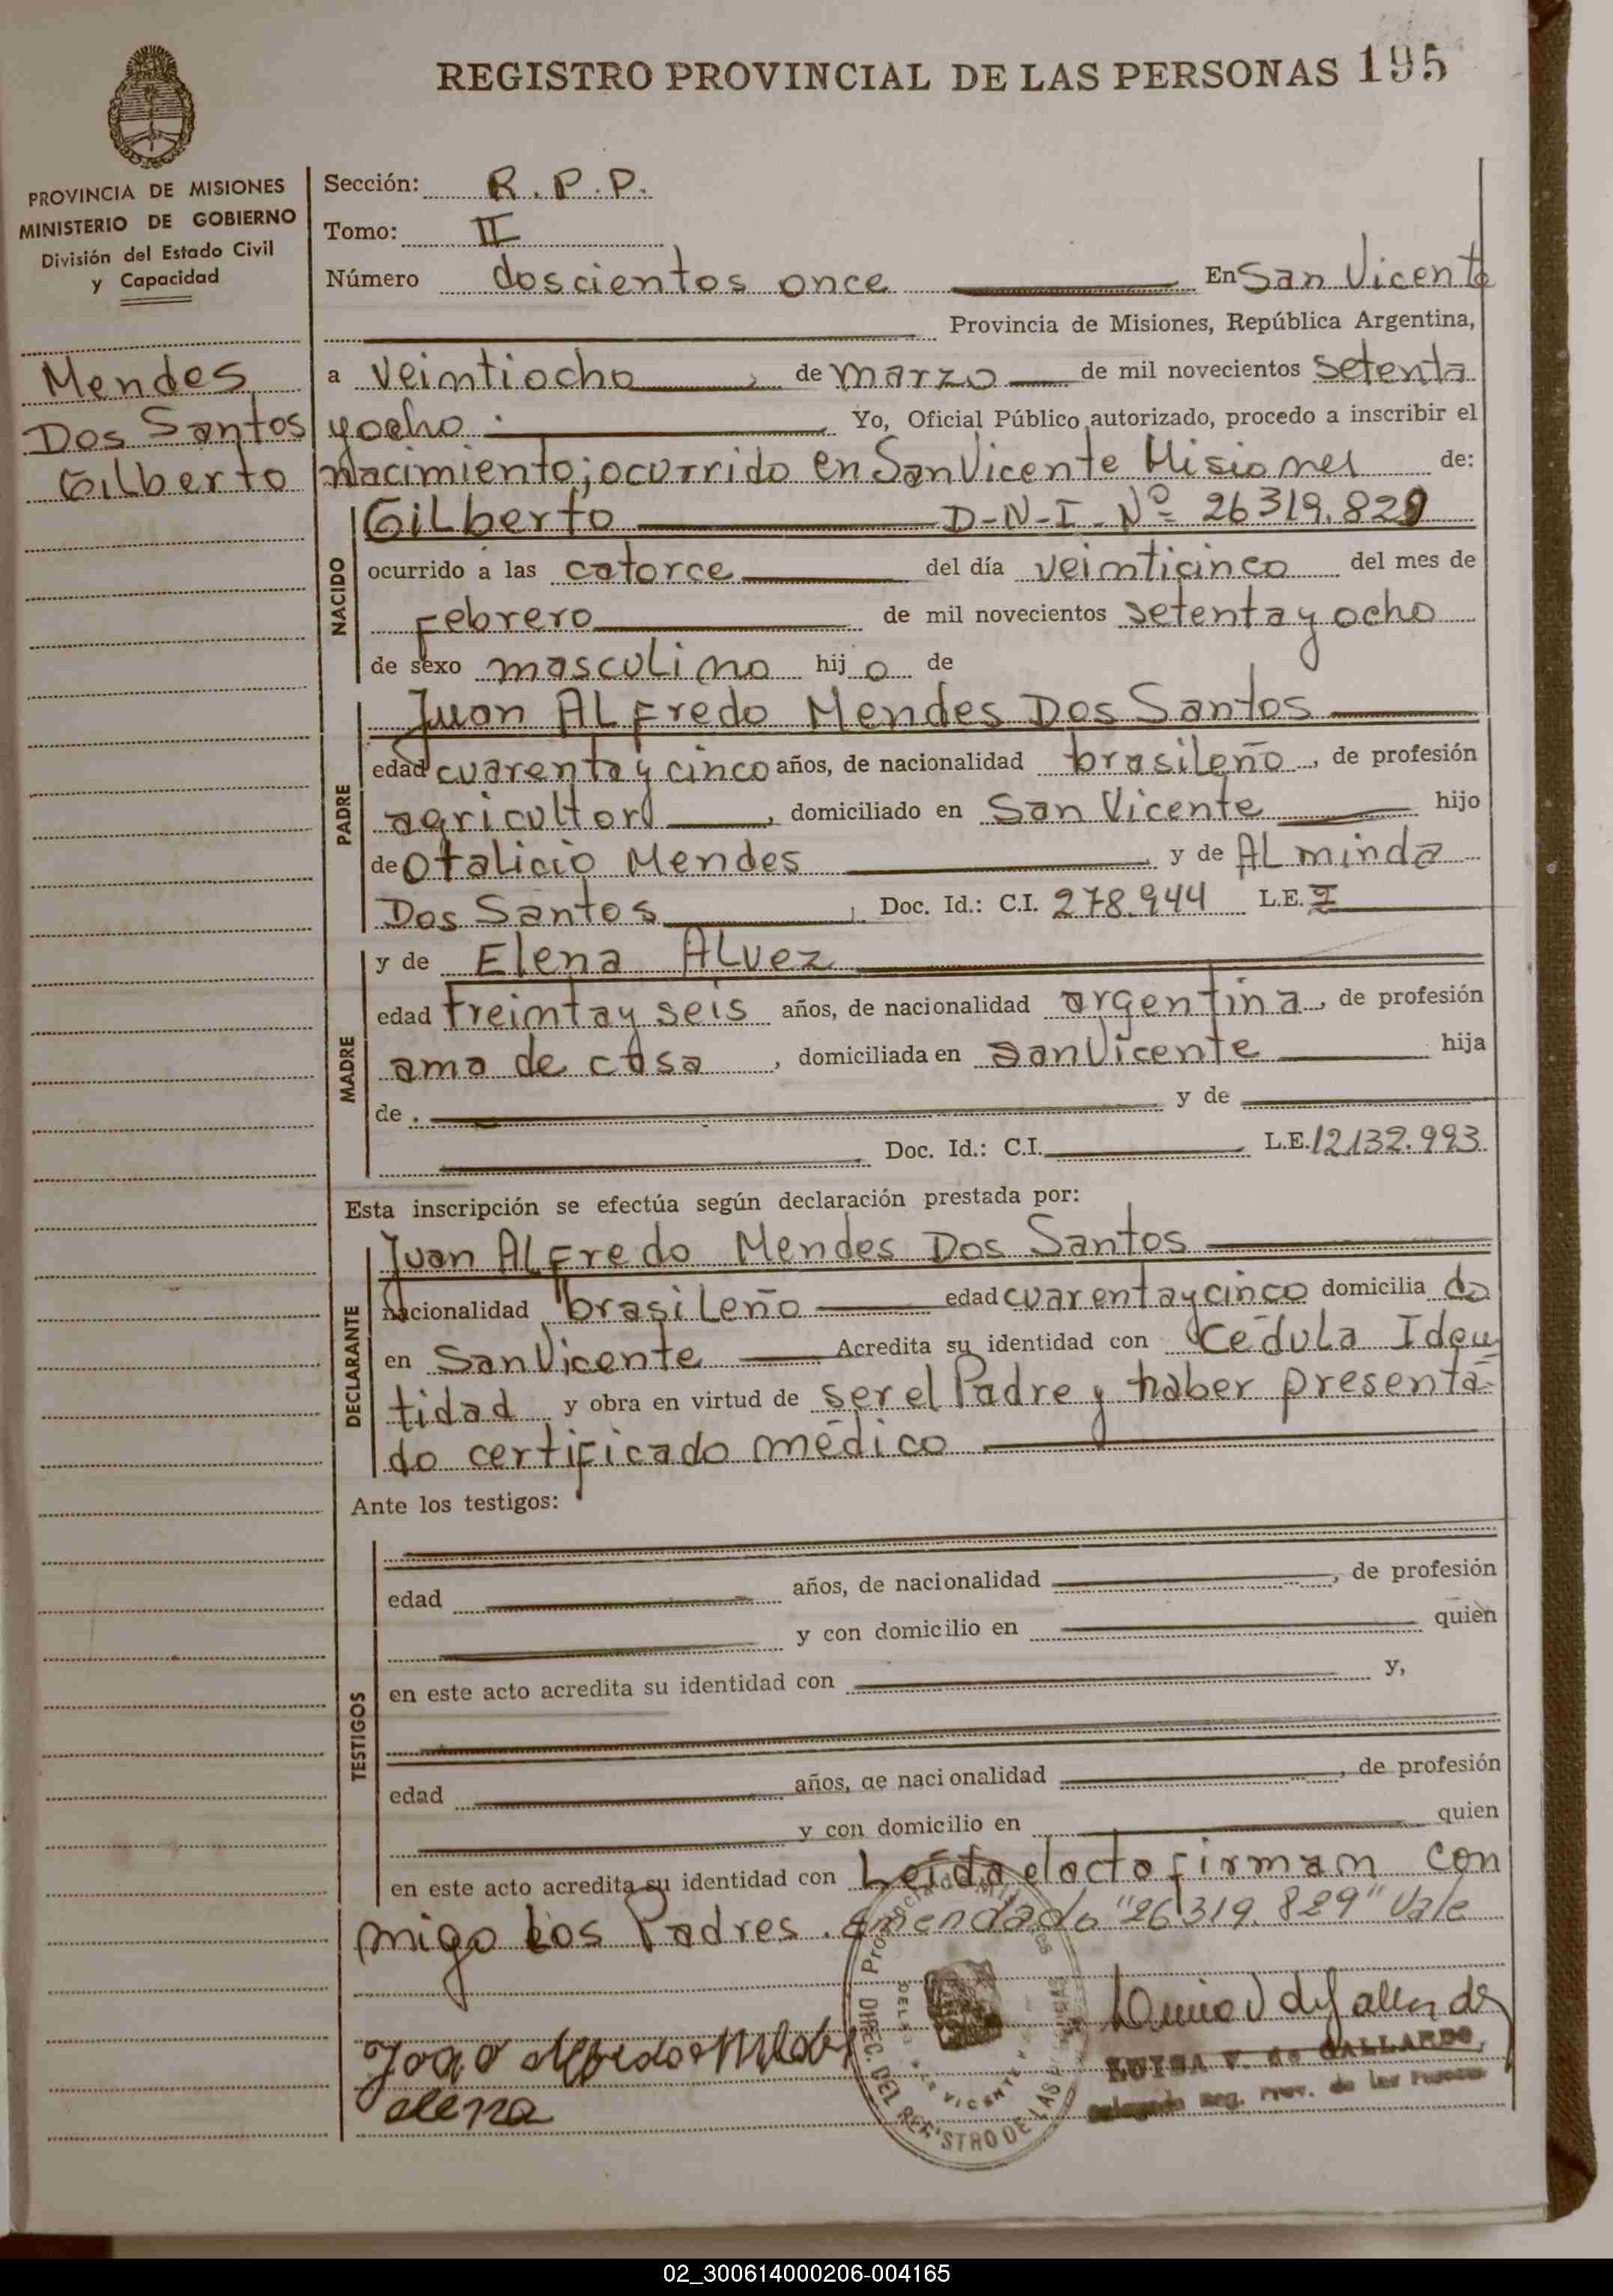 REGISTRO PROVINCIAL DE LAS PERSONAS 195
PROVINCIA DE MISIONES
MINISTERIO DE GOBIERNO
División del Estado Civil
y Capacidad
Mendes
Dos Santos
Gilberto
Sección: R.P.P.
Tomo: II
Número doscientos once En San Vicente
Provincia de Misiones, República Argentina,
a veintiocho, de marzo de mil novecientos setenta
y ocho. Yo, Oficial Público autorizado, procedo a inscribir el
nacimiento; ocurrido en San Vicente Misiones de:
NACIDO
Gilberto D-N-I-Nº 26319.829
ocurrido a las catorce del día veinticinco del mes de
Febrero de mil novecientos setenta y ocho
de sexo masculino hijo de
PADRE
Juan Alfredo Mendes Dos Santos
edad cuarenta y cinco años, de nacionalidad brasileño, de profesión
agricultor, domiciliado en San Vicente hijo
de Otalicio Mendes y de Alminda
Dos Santos, Doc. Id.: C.I. 278.944 L.E.
MADRE
y de Elena Alvez
edad treinta y seis años, de nacionalidad argentina, de profesión
ama de casa, domiciliada en San Vicente hija
de . y de
Doc. Id.: C.I. L.E. 12.132.993
Esta inscripción se efectúa según declaración prestada por:
DECLARANTE
Juan Alfredo Mendes Dos Santos
nacionalidad brasileño edad cuarenta y cinco domiciliado
en San Vicente Acredita su identidad con Cédula Iden
tidad y obra en virtud de ser el Padre y haber presenta-
do certificado médico
Ante los testigos:
TESTIGOS
edad años, de nacionalidad , de profesión
y con domicilio en quien
en este acto acredita su identidad con y,
edad años, de nacionalidad , de profesión
y con domicilio en quien
en este acto acredita su identidad con Leída el acta firman con
migo los Padres. Enmendado "26319.829" Vale
elena
LUISA V. de GALLARDO
DIREC. DEL REGISTRO DE LAS
02_300614000206-004165